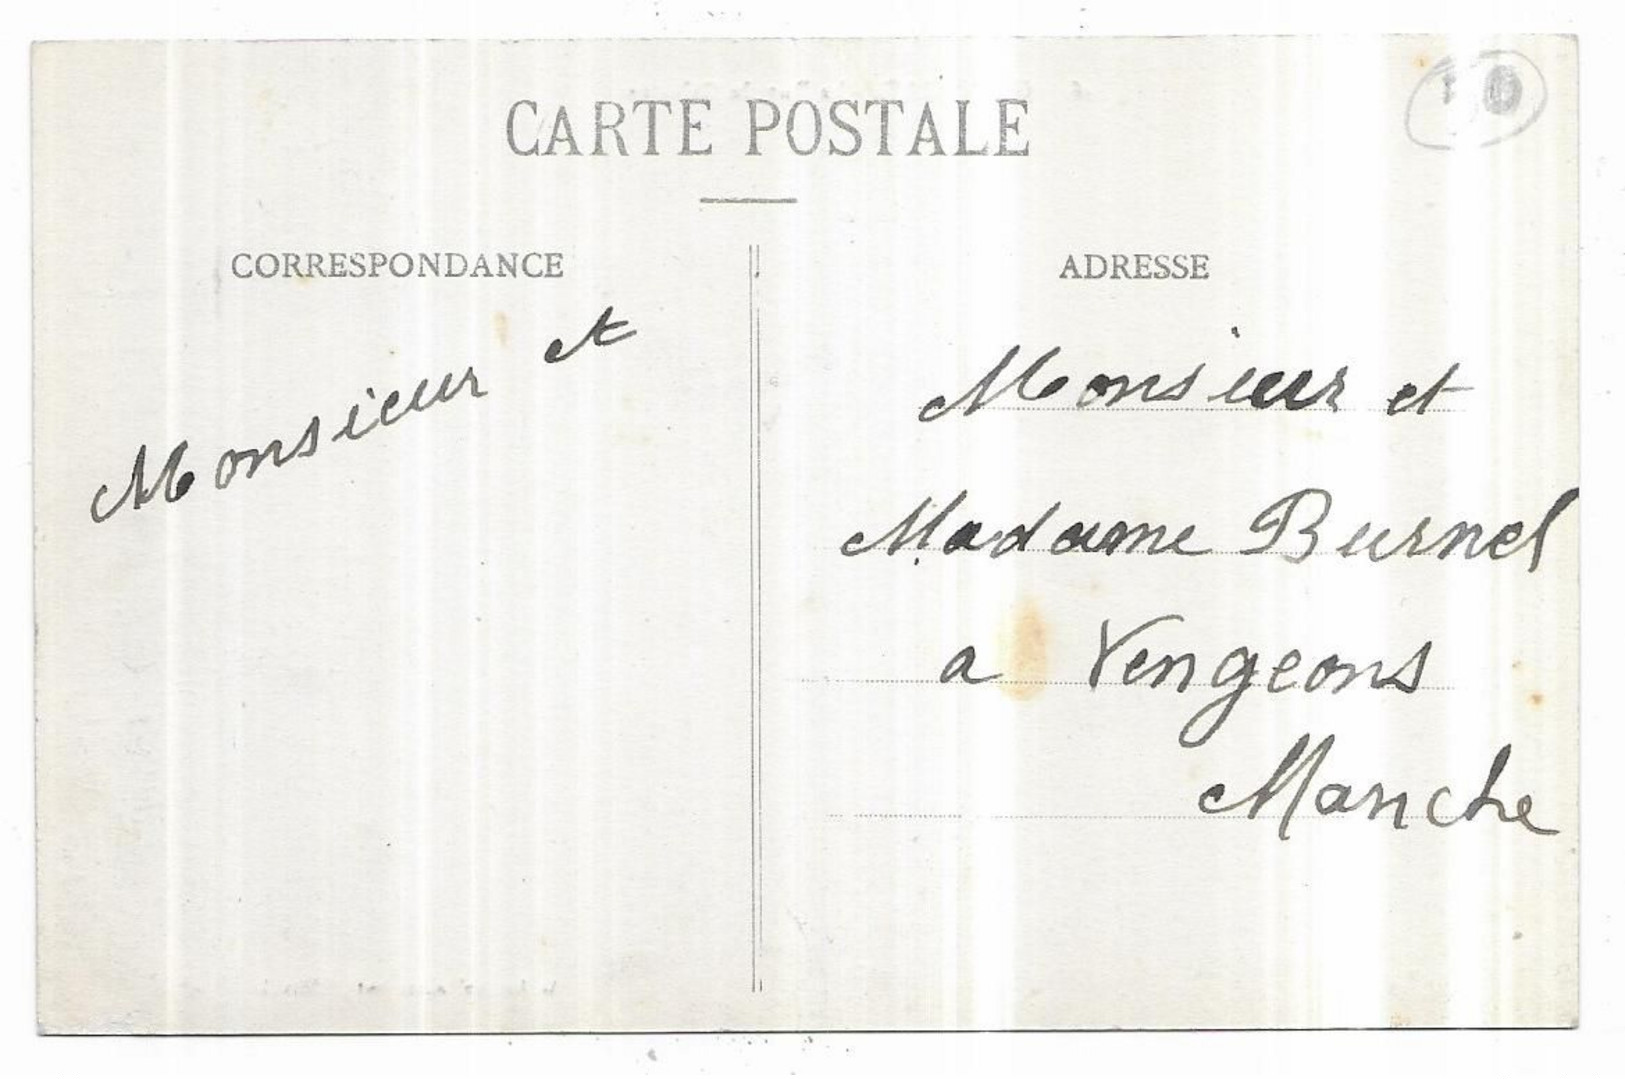 CARTE POSTALE
CORRESPONDANCE
Monsieur et
ADRESSE
Monsieur et
Madame Burnel
a Vengeons
Manche